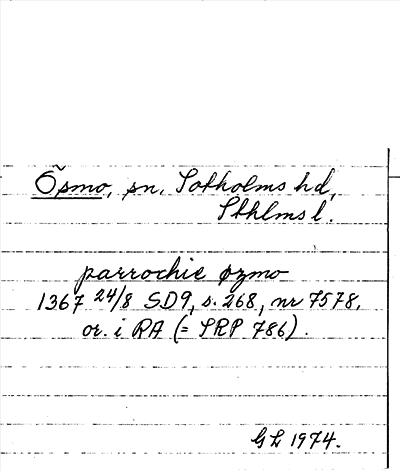 Ösmo, sn, Sotholms hd,
Sthlms l.
parrochie øzmo
1367 24/8 SD9, s. 268, nr 7578,
or. i RA (= SRP 786).
GL 1974.